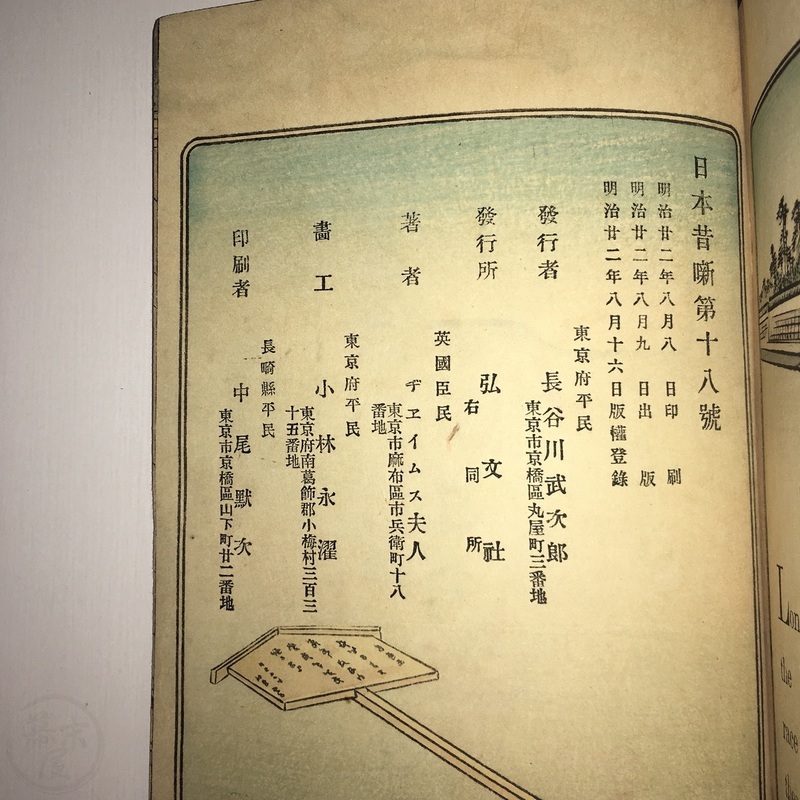 日本昔噺第十八號
明治廿二年八月八日印刷
明治廿二年八月九日出版
明治廿二年八月十六日版權登錄
東京府平民
發行者 長谷川武次郎
東京市京橋區丸屋町三番地
發行所 弘文社
右同所
英國臣民
著者 ヂエイムス夫人
東京市麻布區市兵衛町十八
番地
東京府平民
畵工 小林永濯
東京府南葛飾郡小梅村三百三
十五番地
長崎縣平民
印刷者 中尾默次
東京市京橋區山下町廿二番地
Lon
the
race